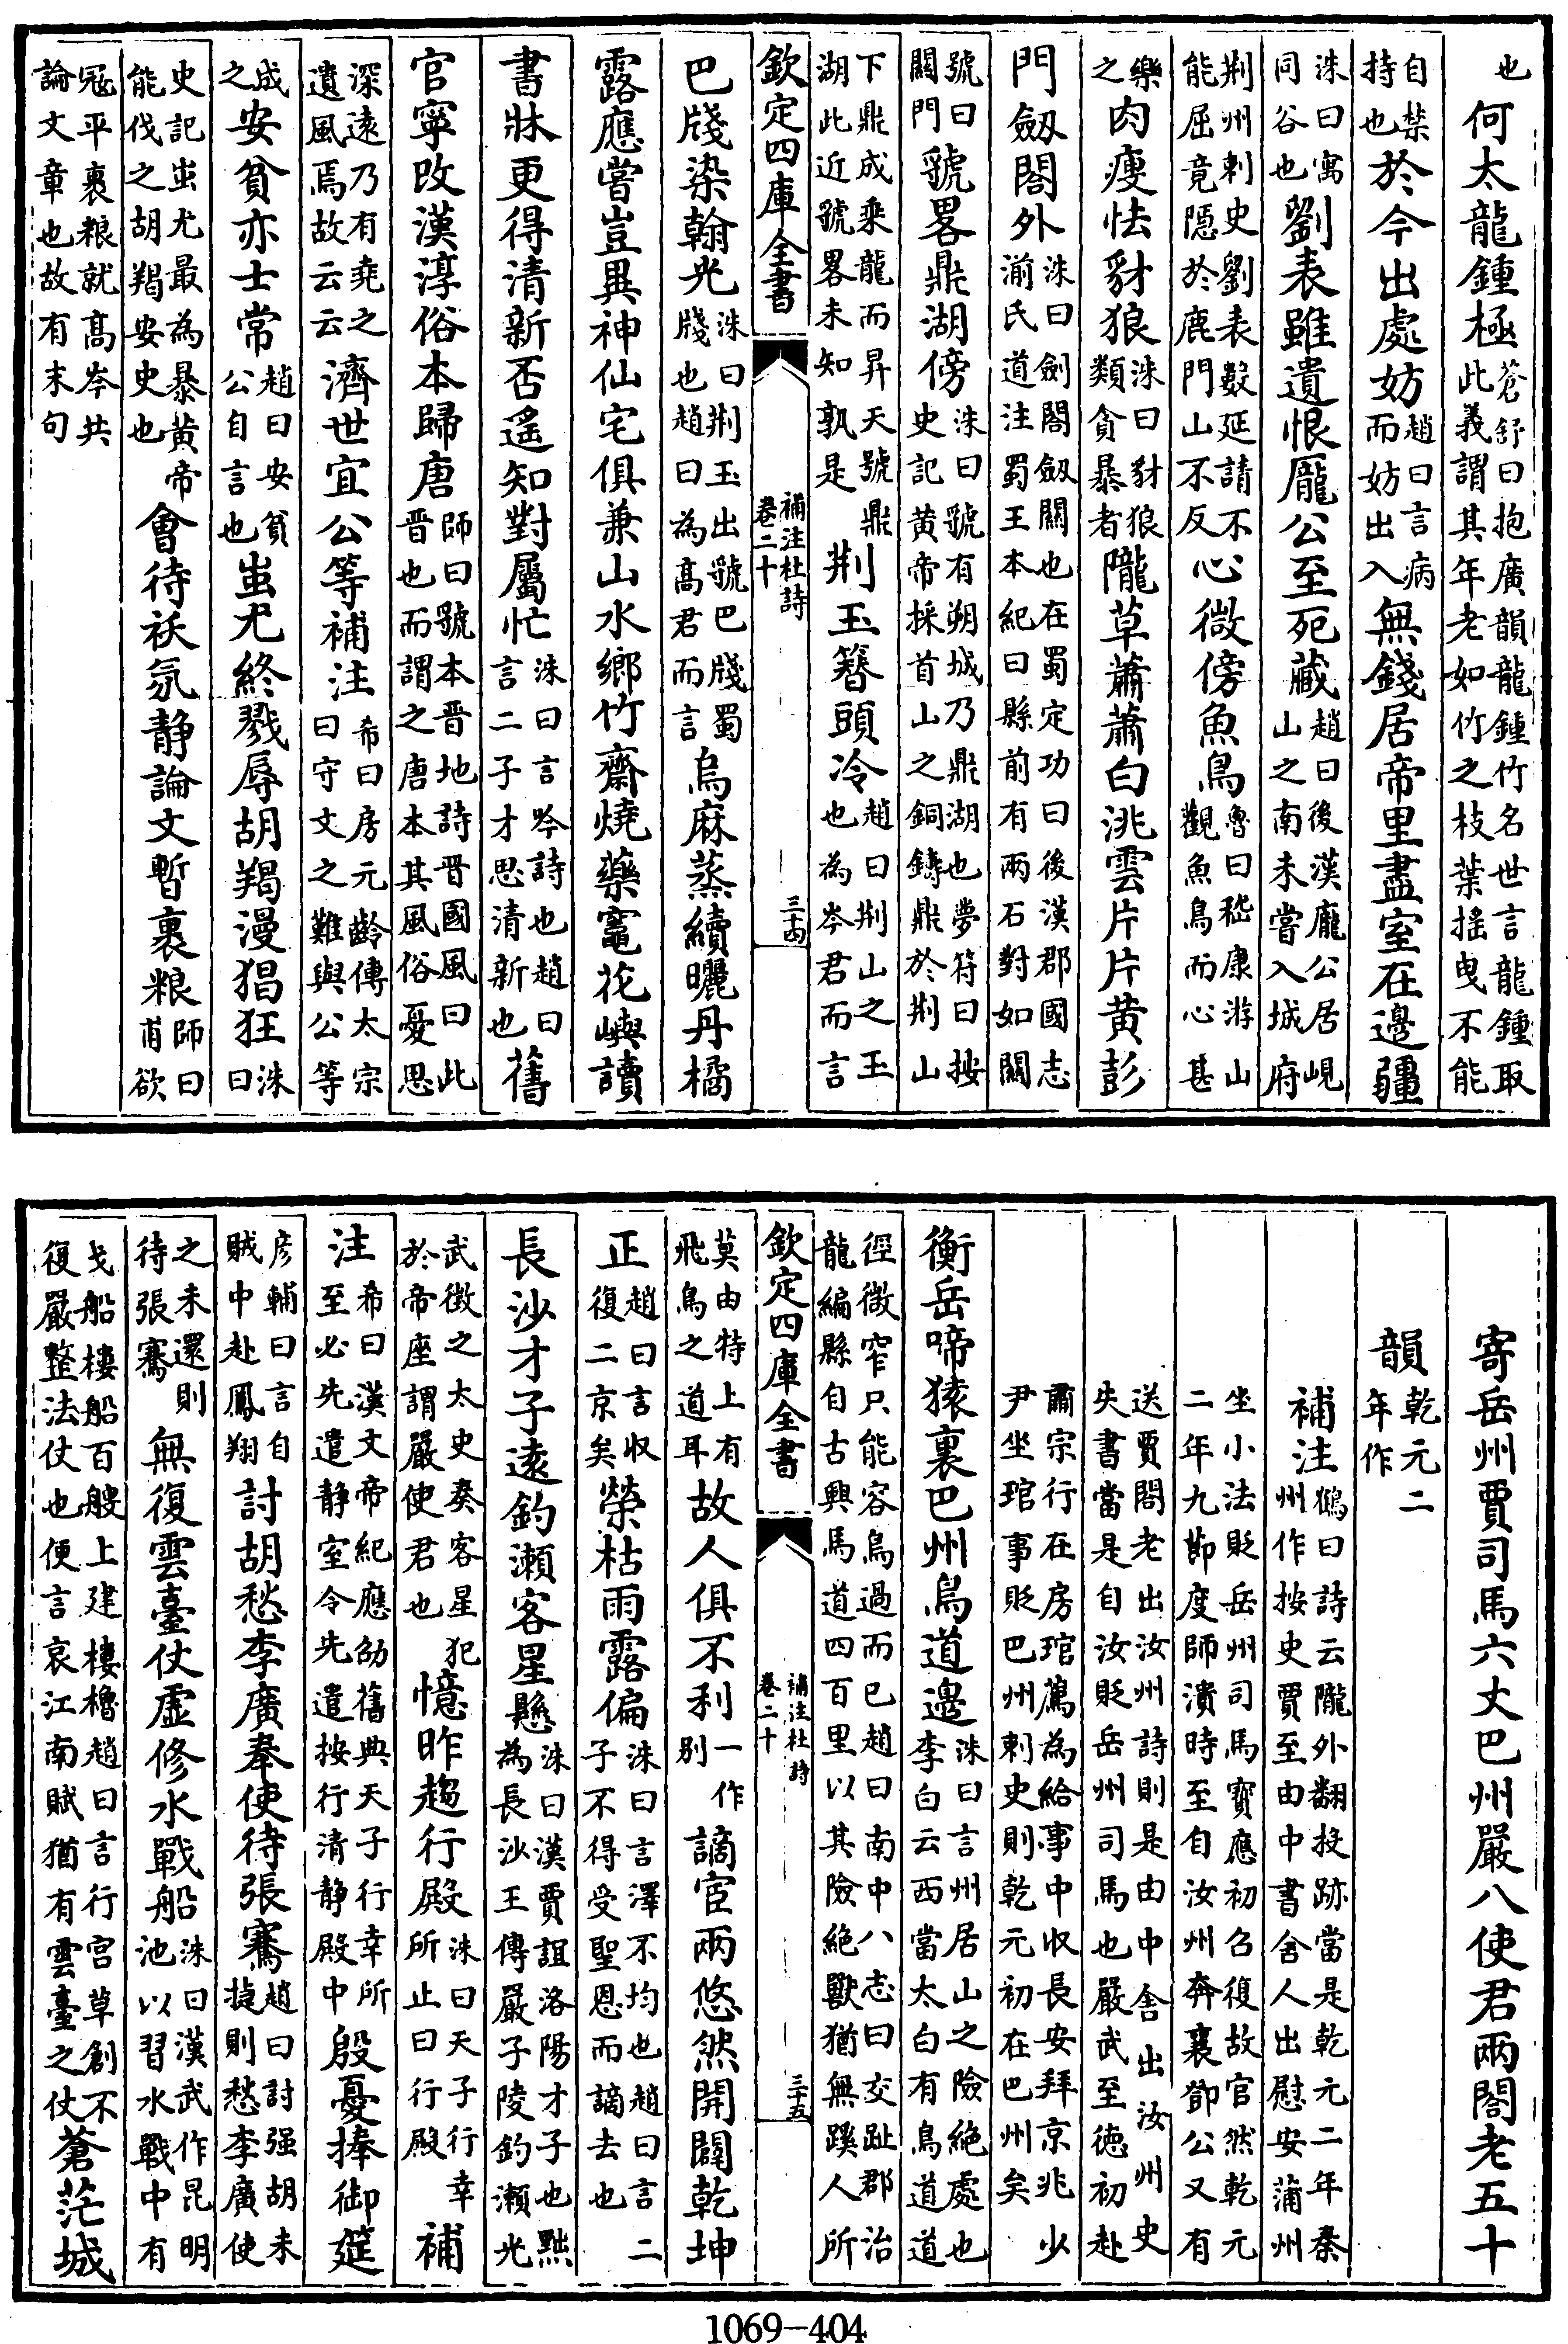 也何太龍鍾極蒼舒曰抱廣韻龍鍾竹名世言龍鍾取此義謂其年老如竹之枝葉揺曳不能
自禁持也於今出處妨趙曰言病而妨出入無錢居帝里盡室在邊疆
洙曰寓同谷也劉表雖遺恨龎公至死藏趙曰後漢龎公居峴山之南未嘗入城府
荆州刺史劉表數延請不能屈竟隱於鹿門山不反心微傍魚鳥魯曰嵇康游山觀魚鳥而心甚
樂之肉瘦怯豺狼洙曰豺狼類貪暴者隴草蕭蕭白洮雲片片黄彭
門劔閣外洙曰劍閣劔關也在蜀定功曰後漢郡國志湔氐道注蜀王本紀曰縣前有兩石對如闕
號曰闕門虢畧鼎湖傍洙曰虢有朔城乃鼎湖也夢符曰按史記黄帝採首山之銅鑄鼎於荆山
下鼎成乘龍而昇天號鼎湖此近虢畧未知孰是荆玉簪頭冷趙曰荆山之玉也為岑君而言
欽定四庫全書
補注杜詩
卷二十
三十四
巴牋染翰光洙曰荆玉出虢巴牋蜀牋也趙曰為高君而言烏麻蒸續曬丹橘
露應嘗豈異神仙宅俱兼山水鄉竹齋燒藥竈花嶼讀
書牀更得清新否遥知對屬忙洙曰言吟詩也趙曰言二子才思清新也舊
官寧改漢淳俗本歸唐師曰虢本晉地詩晋國風曰此晋也而謂之唐本其風俗憂思
深逺乃有堯之遺風焉故云云濟世宜公等補注希曰房元齡傳太宗曰守文之難與公等
成之安貧亦士常趙曰安貧公自言也蚩尤終戮辱胡羯漫猖狂洙曰
史記蚩尤最為暴黄帝能伐之胡羯安史也會待祅氛静論文暫裹粮師曰甫欲
冦平裹粮就高岑共論文章也故有末句
寄岳州賈司馬六丈巴州嚴八使君兩閣老五十
韻乾元二年作
補注鶴曰詩云隴外翻投跡當是乾元二年秦州作按史賈至由中書舍人出慰安蒲州
坐小法貶岳州司馬寶應初召復故官然乾元二年九節度師潰時至自汝州奔襄鄧公又有
送賈閣老出汝州詩則是由中舎出汝州史失書當是自汝貶岳州司馬也嚴武至徳初赴
肅宗行在房琯薦為給事中收長安拜京兆少尹坐琯事貶巴州刺史則乾元初在巴州矣
衡岳啼猿裏巴州鳥道邊洙曰言州居山之險絶處也李白云西當太白有鳥道道
徑㣲窄只能容鳥過而已趙曰南中八志曰交趾郡治龍編縣自古興鳥道四百里以其險絶獸猶無蹊人所
莫由特上有飛鳥之道耳故人俱不利一作别謫宦兩悠然開闢乾坤
欽定四庫全書
補注杜詩
卷二十
三十五
正趙曰言收復二京矣榮枯雨露偏洙曰言澤不均也趙曰言二子不得受聖恩而謫去也
長沙才子逺釣瀨客星懸洙曰漢賈誼洛陽才子也黜為長沙王傅嚴子陵釣瀬光
武徴之太史奏客星犯於帝座謂嚴使君也憶昨趨行殿洙曰天子行幸所止曰行殿補
注希曰漢文帝紀應劭舊典天子行幸所至必先遣静室令先遣按行清静殿中殷憂捧御筵
彦輔曰言自賊中赴鳳翔討胡愁李廣奉使待張騫趙曰討强胡未捷則愁李廣使
之未還則待張騫無復雲臺仗虚修水戰船洙曰漢武作昆明池以習水戰中有
戈船樓船百艘上建樓櫓趙曰言行宫草創不復嚴整法仗也便言哀江南賦猶有雲臺之仗蒼茫城
1069-404